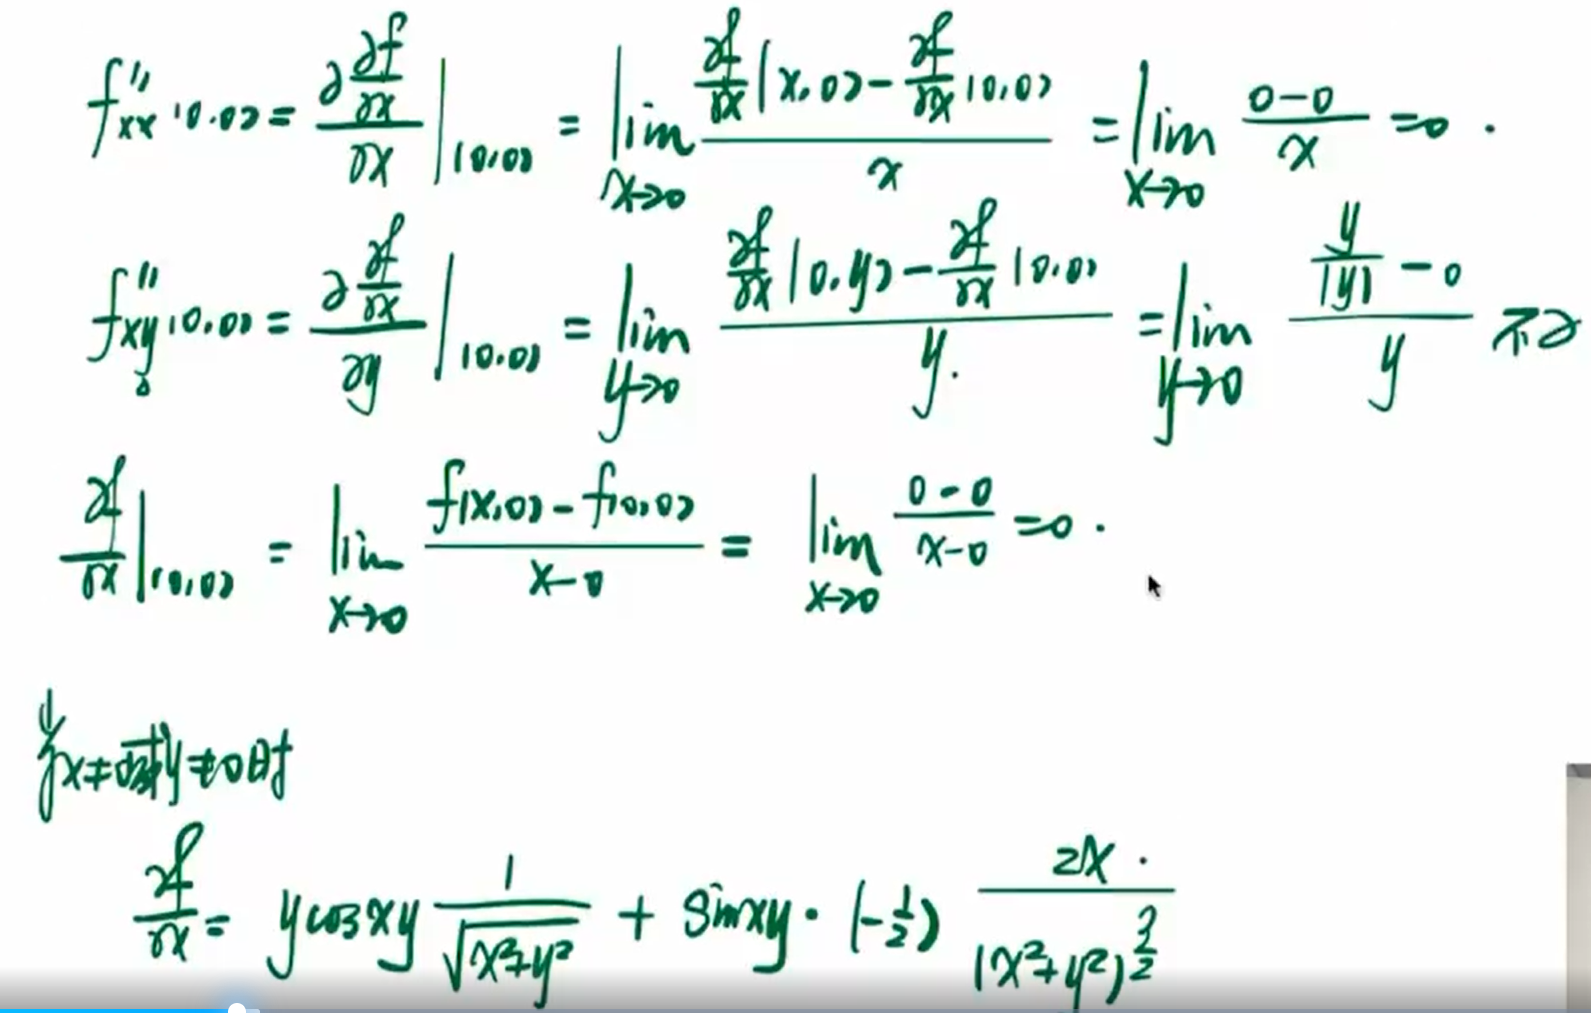 f''xx(0,0) = ∂(∂f/∂x)/∂x |(0,0) = lim x→0 (∂f/∂x(x,0) - ∂f/∂x(0,0))/x = lim x→0 (0-0)/x = 0.
f''xy(0,0) = ∂(∂f/∂x)/∂y |(0,0) = lim y→0 (∂f/∂x(0,y) - ∂f/∂x(0,0))/y. = lim y→0 (y/|y| - 0)/y 不∃
∂f/∂x |(0,0) = lim x→0 (f(x,0) - f(0,0))/(x-0) = lim x→0 (0-0)/(x-0) = 0.
x≠0或y≠0时
∂f/∂x = y cos xy 1/√(x²+y²) + sin xy · (-1/2) 2x·/(x²+y²)^(3/2)